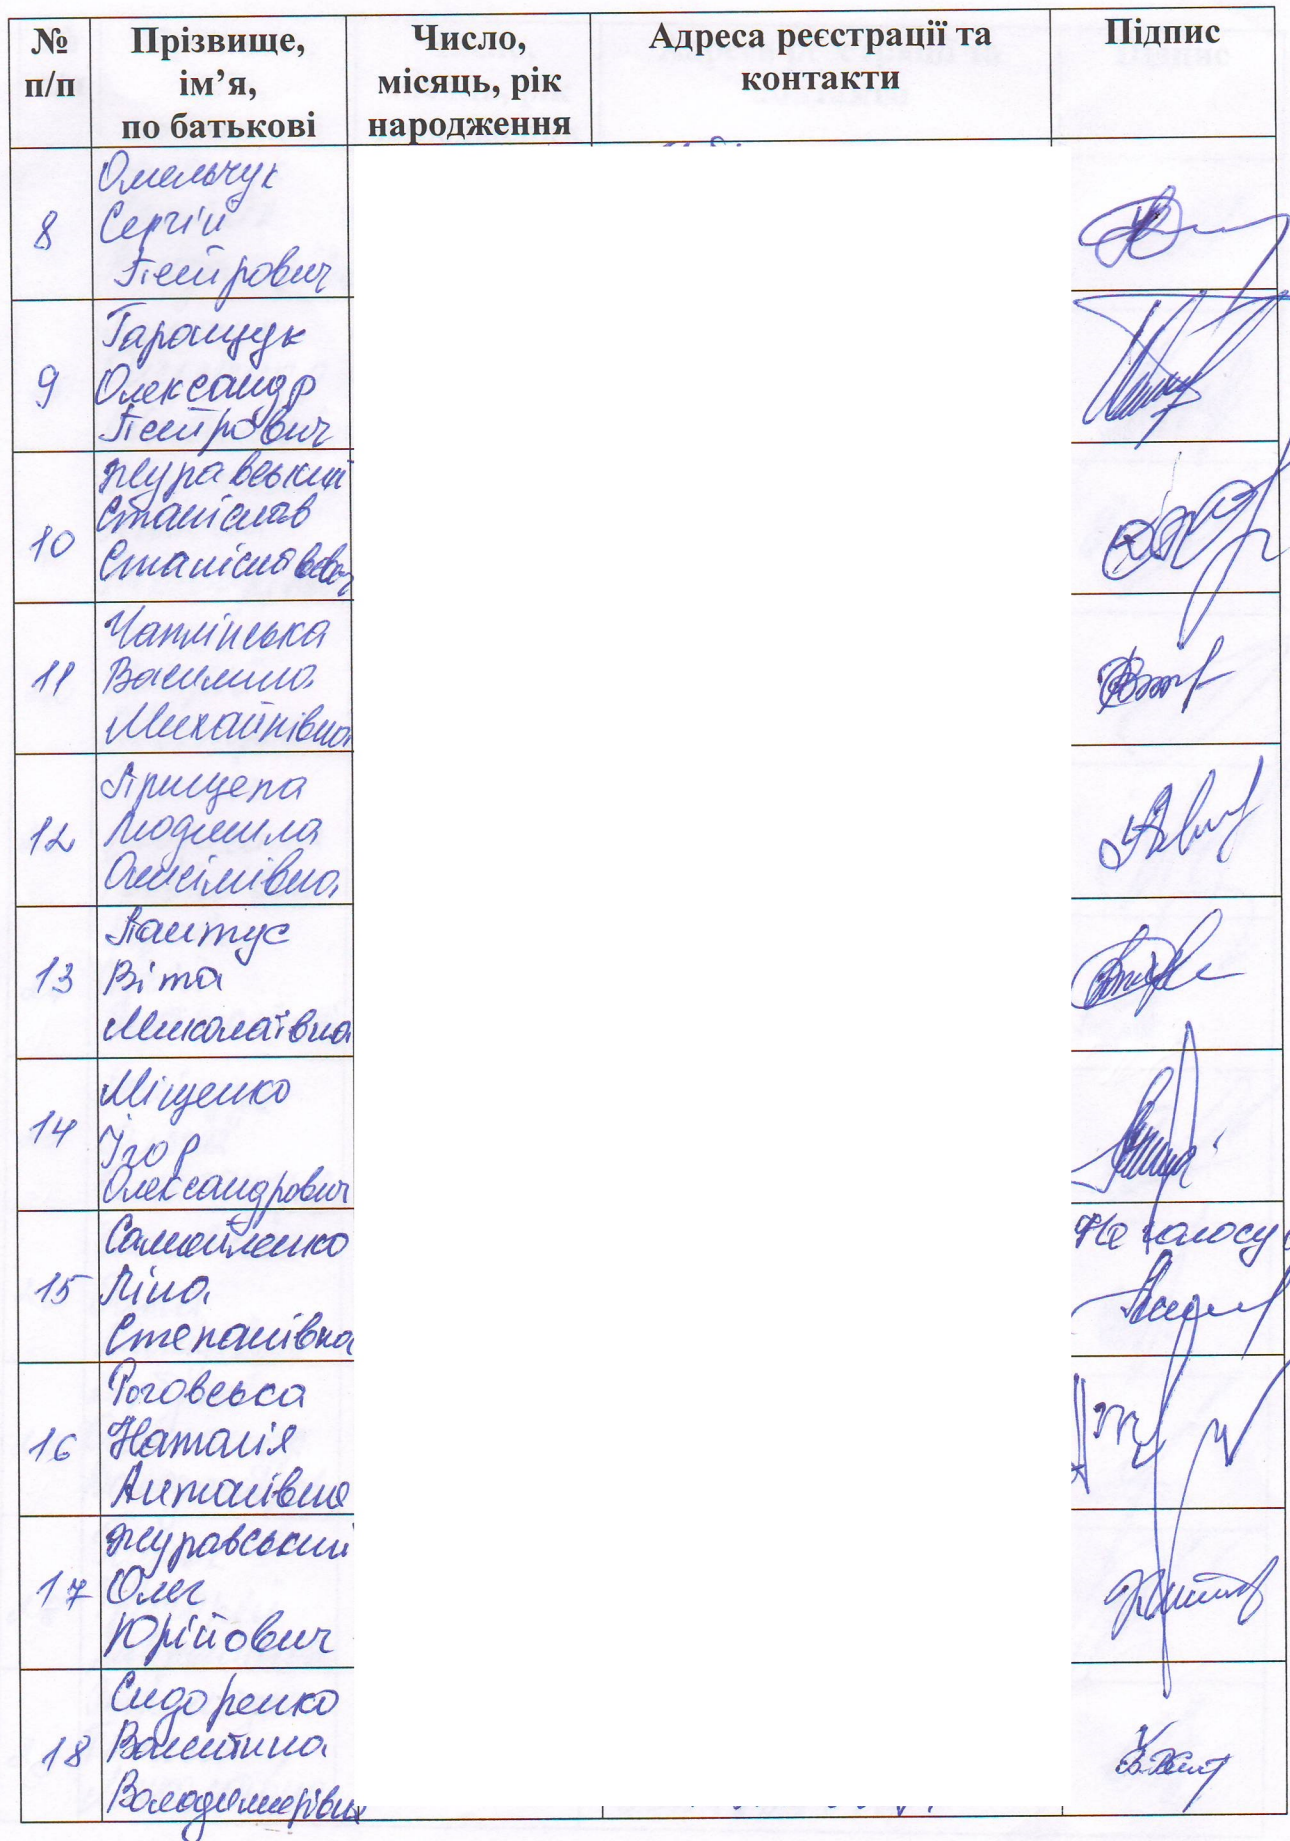 № п/п
Прізвище, ім’я, по батькові
Число, місяць, рік народження
Адреса реєстрації та контакти
Підпис
8
Омельчук
Сергій
Петрович
9
Таращук
Олександр
Петрович
10
Журавський
Станіслав
Станіславович
11
Чаплінська
Василина
Михайлівна
12
Прищепа
Людмила
Онисімівна
13
Пантус
Віта
Миколаївна
14
Міщенко
Ігор
Олександрович
15
Самойленко
Ліна
Степанівна
Не голосу
16
Роговська
Наталія
Антонівна
17
Журавський
Олег
Юрійович
18
Сидоренко
Валентина
Володимирівна